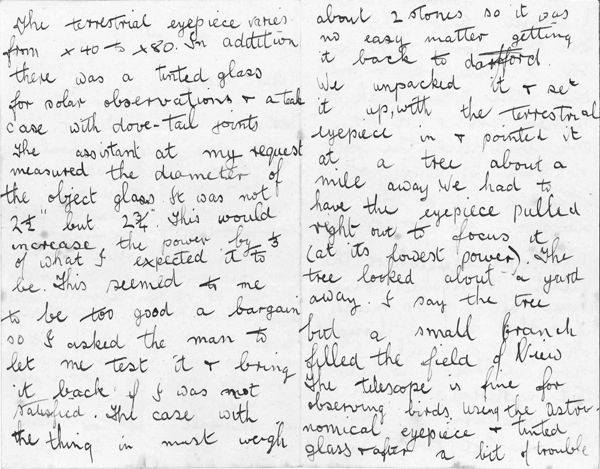 The terrestrial eyepiece varies
from x 40 to x 80. In addition
there was a tinted glass
for solar observations & a teak
case with dove-tail joints
The assistant at my request
measured the diameter of
the object glass It was not
2½" but 2¾". This would
increase the power by ⅓
of what I expected it to
be. This seemed to me
to be too good a bargain
so I asked the man to
let me test it & bring
it back if I was not
satisfied. The case with
the thing in must weigh
about 2 stones so it was
no easy matter getting
it back to dartford.
We unpacked it & set
it up, with the terrestrial
eyepiece in & pointed it
at a tree about a
mile away We had to
have the eyepiece pulled
right out to focus it
(at its lowest power). The
tree looked about a yard
away. I say the tree
but a small branch
filled the field of View
The telescope is fine for
observing birds. Using the Astro-
nomical eyepiece & tinted
glass & after a bit of trouble